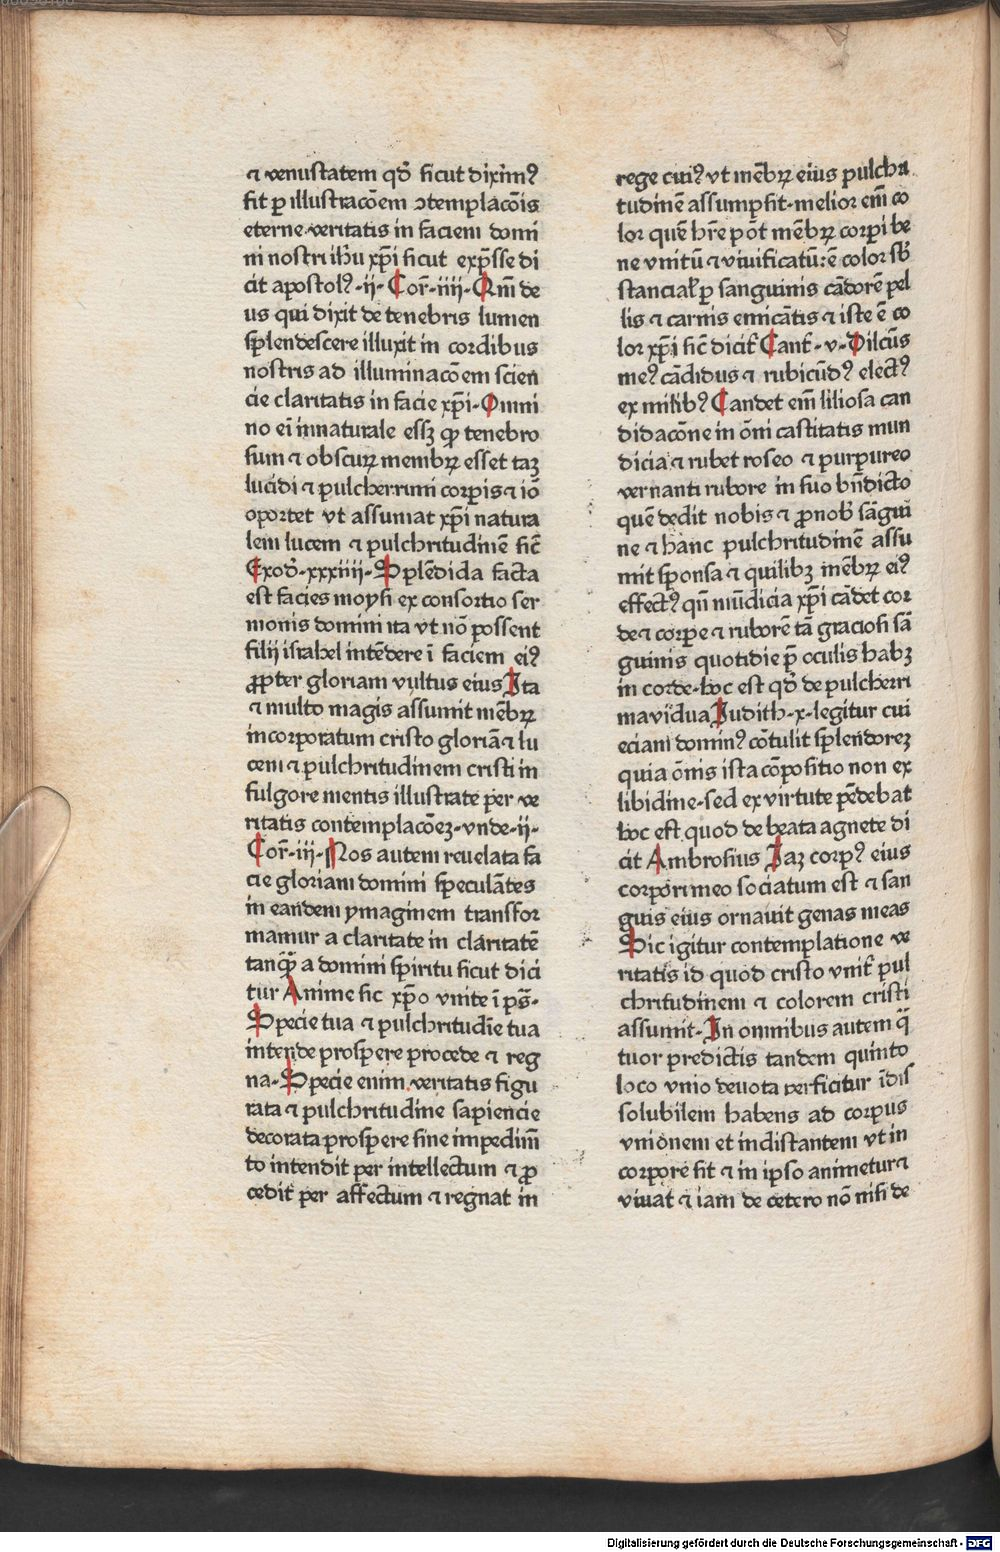 ⁊ venustatem qđ sicut dixim⁹
fit ꝑ illustracōem ↄtemplacōis
eterne veritatis in faciem domi
ni nostri ih̄u xp̄i sicut exp̄sse di
cit apostol⁹ .ij. Cor̄. iiij. Qm̄ de
us qui dixit de tenebris lumen
splendescere illuxit in cordibus
nostris ad illuminacōem scien
cie claritatis in facie xp̄i. Omni
no ei innaturale essꝫ ꝙ tenebro
sum ⁊ obscuꝝ membꝝ esset taꝫ
lucidi ⁊ pulcherrimi corpis ⁊ iō
oportet vt assumat xp̄i natura
lem lucem ⁊ pulchritudinē sic̄
Exođ. xxxiiii. Splēdida facta
est facies moysi ex consortio ser
monis domini ita vt nō possent
filij israhel intēdere ī faciem ei⁹
ꝓpter gloriam vultus eius Ita
⁊ multo magis assumit mēbꝝ
incorporatum cristo gloriā ⁊ lu
cem ⁊ pulchritudinem cristi in
fulgore mentis illustrate per ve
ritatis contemplacōeꝫ. vnde .ii.
Cor̄. iij. Nos autem reuelata fa
cie gloriam domini speculātes
in eandem ymaginem transfor
mamur a claritate in claritatē
tanꝙ̄ a domini spiritu sicut dici
tur Anime sic xp̄o vnite ī ps̄.
Specie tua ⁊ pulchritudīe tua
intende prospere procede ⁊ reg
na. Specie enim veritatis figu
rata ⁊ pulchritudine sapiencie
decorata prospere sine impedim̄
to intendit per intellectum ⁊ ꝓ
cedit per affectum ⁊ regnat in
rege cui⁹ vt mēbꝝ eius pulch
tudinē assumpsit. melior em̄ co
lor quē hr̄e pōt mēbꝝ corpi be
ne vnitū ⁊ viuificatū: ē color sb̄
stancial̕ ꝑ sanguinis cādorē pel
lis ⁊ carnis emicātis ⁊ iste ē co
lor xp̄i sic̄ dicit̄ Cant̄. v. Dilcūs
me⁹ cādidus ⁊ rubicūd⁹ elect⁹
ex milib⁹ Candet em̄ liliosa can
didacōne in ōni castitatis mun
dicia ⁊ rubet roseo ⁊ purpureo
vernanti rubore in suo bn̄dicto
quē dedit nobis ⁊ ꝓ nob̄ sāgui
ne ⁊ hanc pulchritudinē assu
mit sponsa ⁊ quilibꝫ mēbꝝ ei⁹
effect⁹ qn̄ mūdicia xp̄i cādet cor
de ⁊ corpe ⁊ ruborē tā graciosi sā
guinis quotidie p̄ oculis habꝫ
in corde. hoc est qđ de pulcherri
ma vidua Judith .x. legitur cui
eciam domin⁹ cōtulit splendoreꝫ
quia ōnis ista cōpositio non ex
libidine. sed ex virtute pēdebat
hoc est quod de beata agnete di
cit Ambrosius Jaꝫ corp⁹ eius
corpori meo sociatum est ⁊ san
guis eius ornauit genas meas
Sic igitur contemplatione ve
ritatis id quod cristo vnit̄ pul
chritudinem ⁊ colorem cristi
assumit. In omnibus autem q̄
tuor predictis tandem quinto
loco vnio deuota perficitur īdis
solubilem habens ad corpus
vnionem et indistantem vt in
corpore sit ⁊ in ipso animetur ⁊
viuat ⁊ iam de cetero nō nisi de
Digitalisierung gefördert durch die Deutsche Forschungsgemeinschaft - DFG